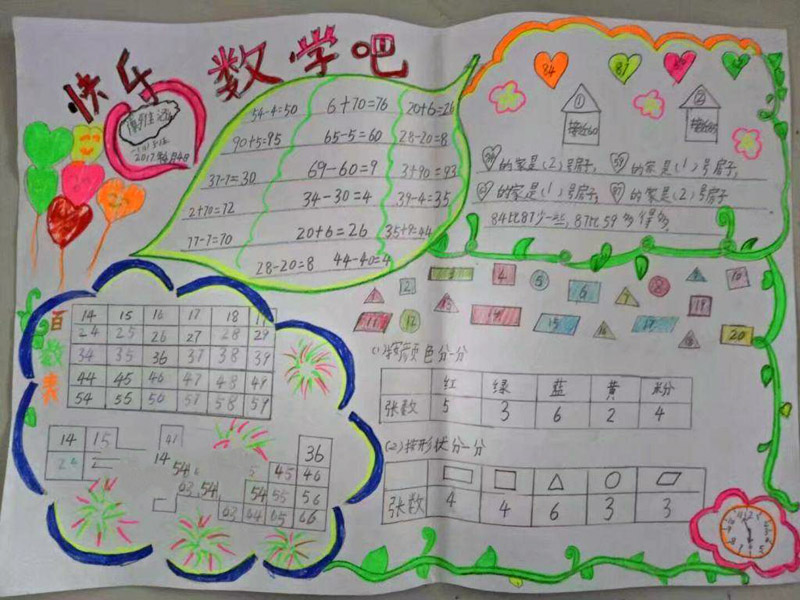 快乐 数学吧
2017年6月4日
54-4=50 6+70=76 20+6=26
90+5=95 65-5=60 28-20=8
37-7=30 69-60=9 3+90=93
34-30=4 39-4=35
2+70=72
77-7=70 20+6=26 35+9=44
28-20=8 44-40=4
84 81
① ②
接近60 接近85
的家是(2)号房子, 59的家是(1)号房子,
的家是(1)号房子, 87的家是(2)号房子
84比87少一些, 87比59多得多
百数表
14 15 16 17 18 19
24 25 26 27 28 29
34 35 36 37 38 39
44 45 46 47 48 49
54 55 56 57 58 59
14 15
24
14
54
63 54
36
45 46
54 55 56
63 64 65 66
1 2 3 4 5 6 7 8 9 10
11 12 13 14 15 16 17 18 19 20
(1)按颜色分一分
红 绿 蓝 黄 粉
张数 5 3 6 2 4
(2)按形状分一分
张数 4 4 6 3 3